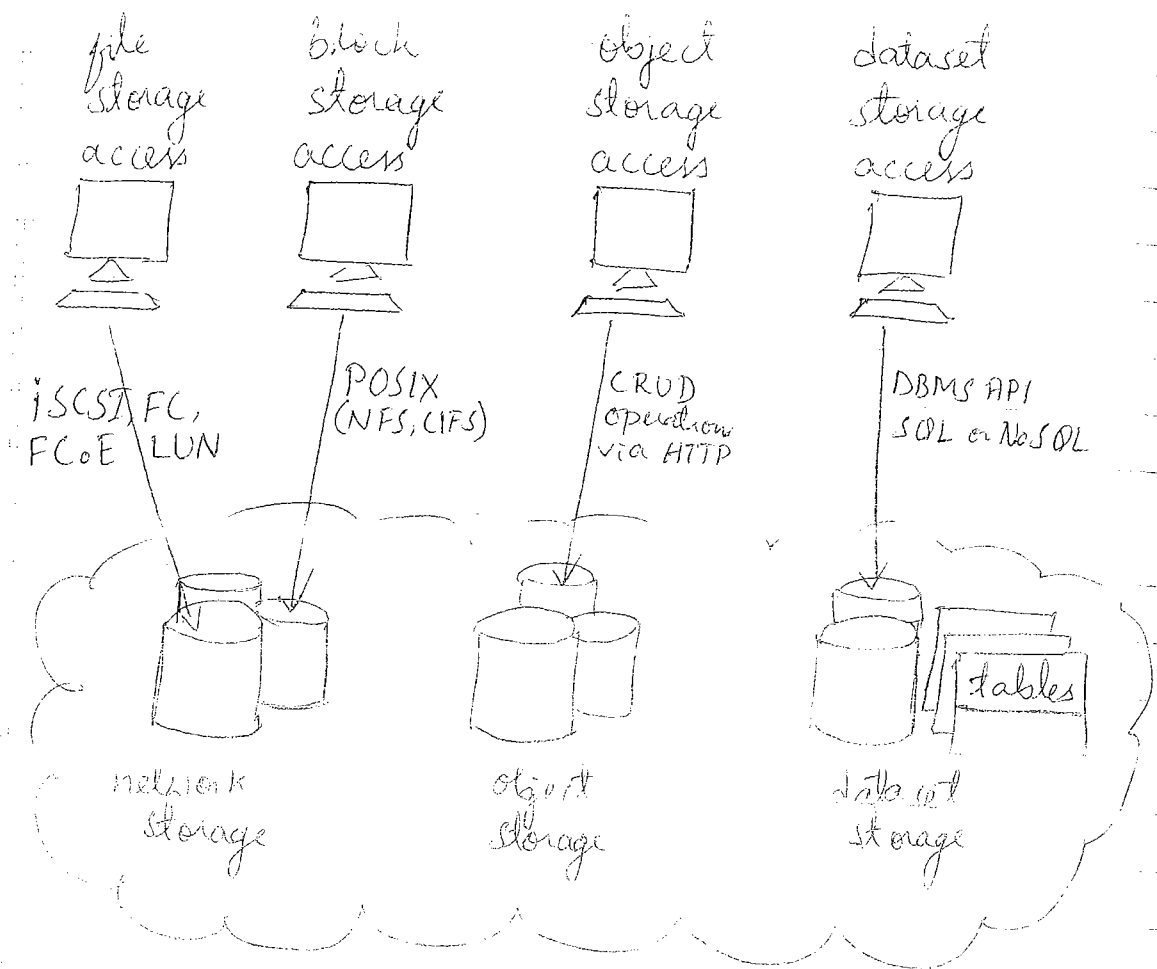 file
storage
access
block
storage
access
object
storage
access
dataset
storage
access
iSCSI, FC,
FCoE LUN
POSIX
(NFS, CIFS)
CRUD
operations
via HTTP
DBMS API
SQL or NoSQL
tables
network
storage
object
storage
dataset
storage